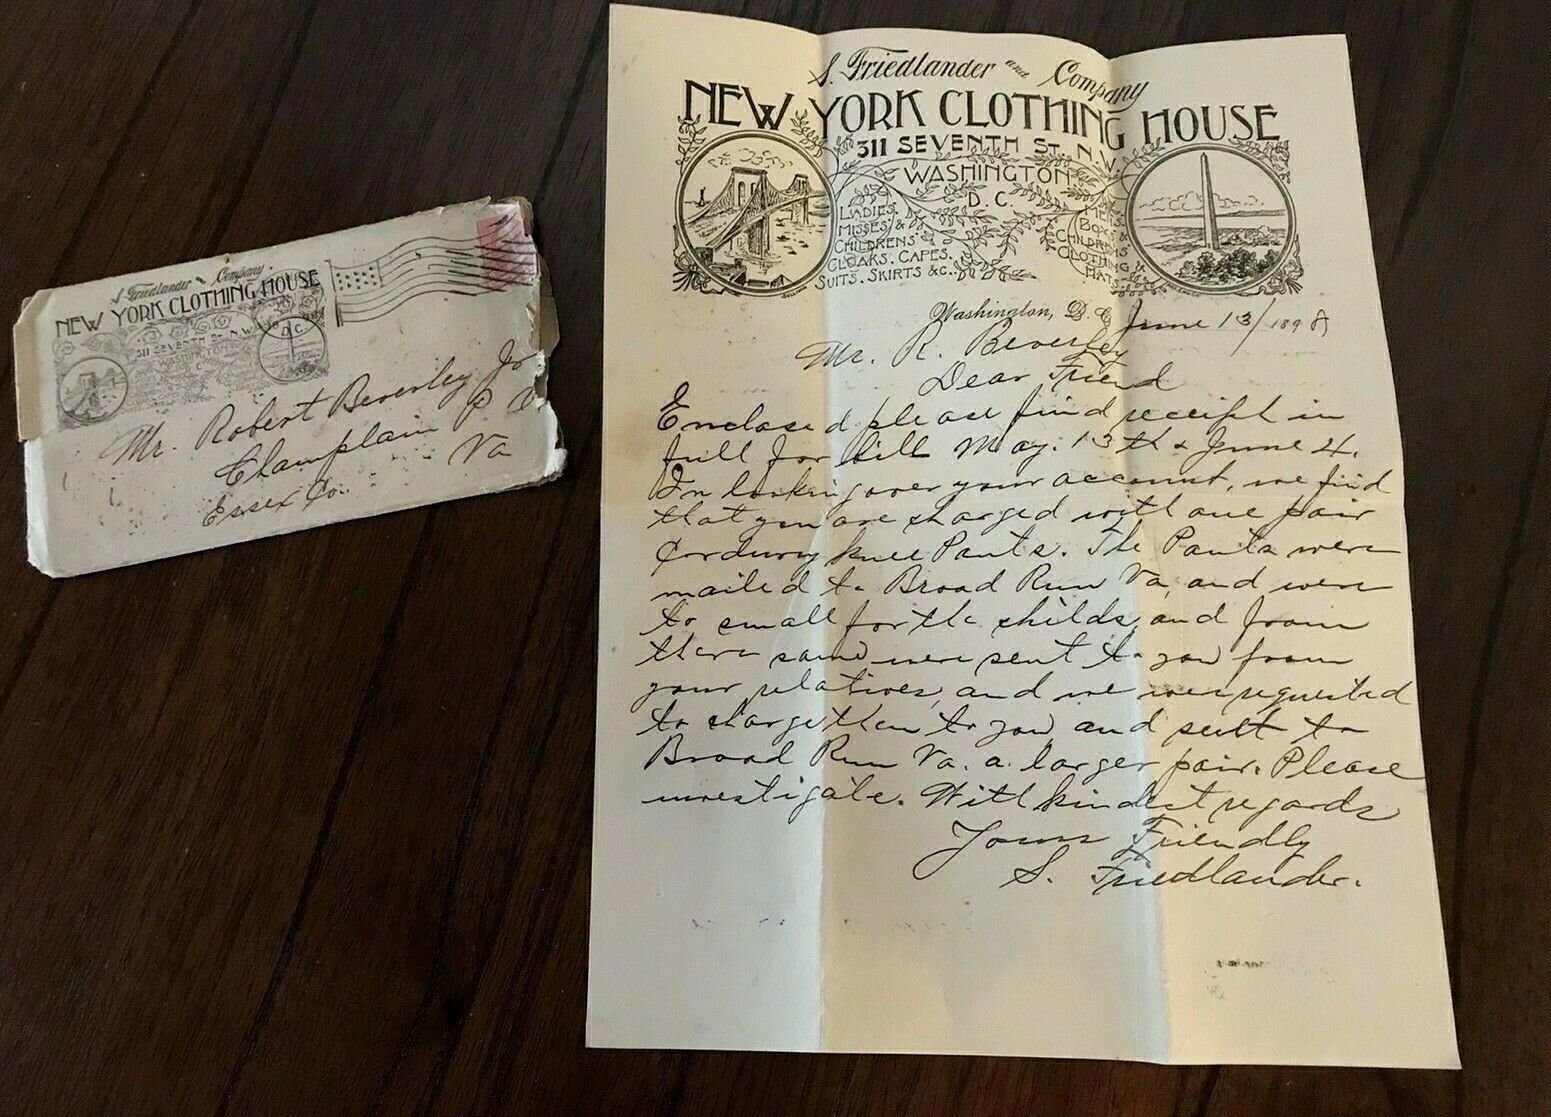 S. Friedlander and Company
NEW YORK CLOTHING HOUSE
311 SEVENTH ST. N.W.
WASHINGTON
D.C.
Mr. Robert Beverley Jr
Champlain P O
Essex Co. Va
S. Friedlander and Company
NEW YORK CLOTHING HOUSE
311 SEVENTH ST. N.W.
WASHINGTON
D.C.
LADIES,
MISSES, &
CHILDRENS
CLOAKS, CAPES,
SUITS, SKIRTS &C.
MENS,
BOYS &
CHILDRENS
CLOTHING,
HATS
Washington, D.C. June 13/1898
Mr. R. Beverley
Dear Friend
Enclosed please find receipt in
full for bill May. 13th & June 4.
In looking over your account, we find
that you are charged with one pair
Corduroy knee Pants. The Pants were
mailed to Broad Run Va, and were
to small for the childs, and from
there same were sent to you from
your relatives, and we were requested
to charge them to you and sent to
Broad Run Va. a larger pair. Please
investigate. With kindest regards
Yours Friendly
S. Friedlander.